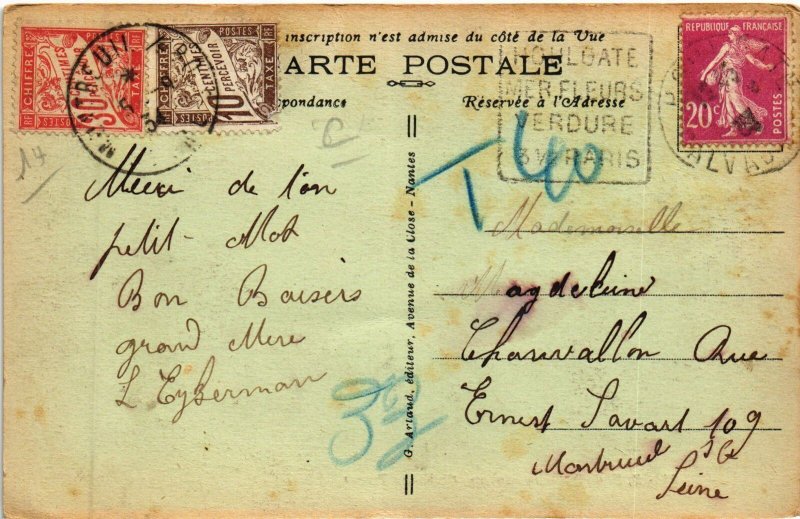 inscription n'est admise du côté de la Vue
CARTE POSTALE
Réservée à l'Adresse
CHIFFRE
TAXE
RF
30
CENTIMES
POSTES
CHIFFRE
TAXE
RF
10
CENTIMES
À PERCEVOIR
REPUBLIQUE FRANÇAISE
20c
POSTES
HOULGATE
MER FLEURS
VERDURE
3 H PARIS
14
T 40
Merci de ton
petit Mot
Bon Baisers
grand Mere
L Eyberman
G. Artaud, éditeur, Avenue de la Close - Nantes
Mademoiselle
Magdeleine
Chanvallon Rue
Ernest Savart 109
Montreuil
Seine